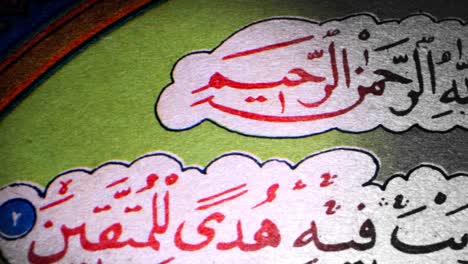 ٱلرَّحْمَٰنِ ٱلرَّحِيمِ
فِيهِ هُدًى لِلْمُتَّقِينَ ٢